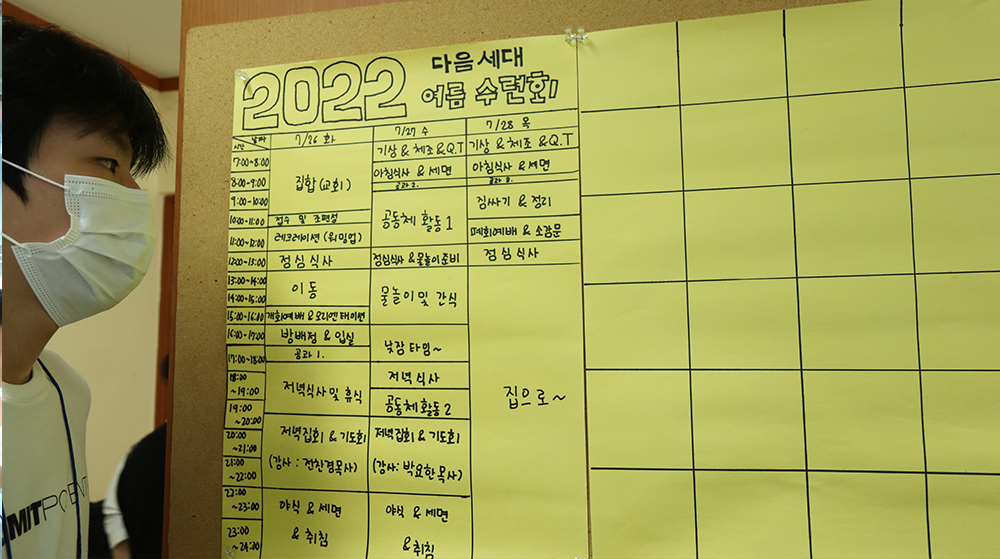 2022
다음세대
여름 수련회
시간 날짜 7/26 화 7/27 수 7/28 목
7:00~8:00 집합(교회) 기상 & 체조 & Q.T 기상 & 체조 & Q.T
8:00~9:00 아침식사 & 세면 아침식사 & 세면
공과 2. 공과 3.
9:00~10:00 공동체 활동 1 짐싸기 & 정리
10:00~11:00 접수 및 조편성
11:00~12:00 레크레이션 (워밍업) 폐회예배 & 소감문
12:00~13:00 점심식사 점심식사 & 물놀이준비 점심식사
13:00~14:00 이동 물놀이 및 간식 집으로~
14:00~15:00
15:00~16:00 개회예배 & 오리엔테이션
16:00~17:00 방배정 & 입실 낮잠 타임~
17:00~18:00 공과 1.
18:00
~19:00 저녁식사 및 휴식 저녁식사
19:00
~20:00 공동체활동 2
20:00
~21:00 저녁집회 & 기도회 저녁집회 & 기도회
21:00
~22:00 (강사 : 전찬경목사) (강사: 박요한목사)
22:00
~23:00 야식 & 세면 야식 & 세면
23:00
~24:00 & 취침 & 취침
MITPOENT